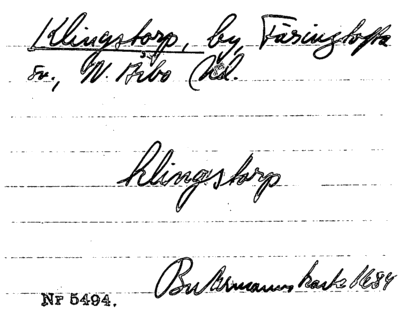 Klingstorp, by, Färingtofta
sn., N. Åsbo hd.
Klingstorp
Buhrmanns karta 1684
Nr 5494.